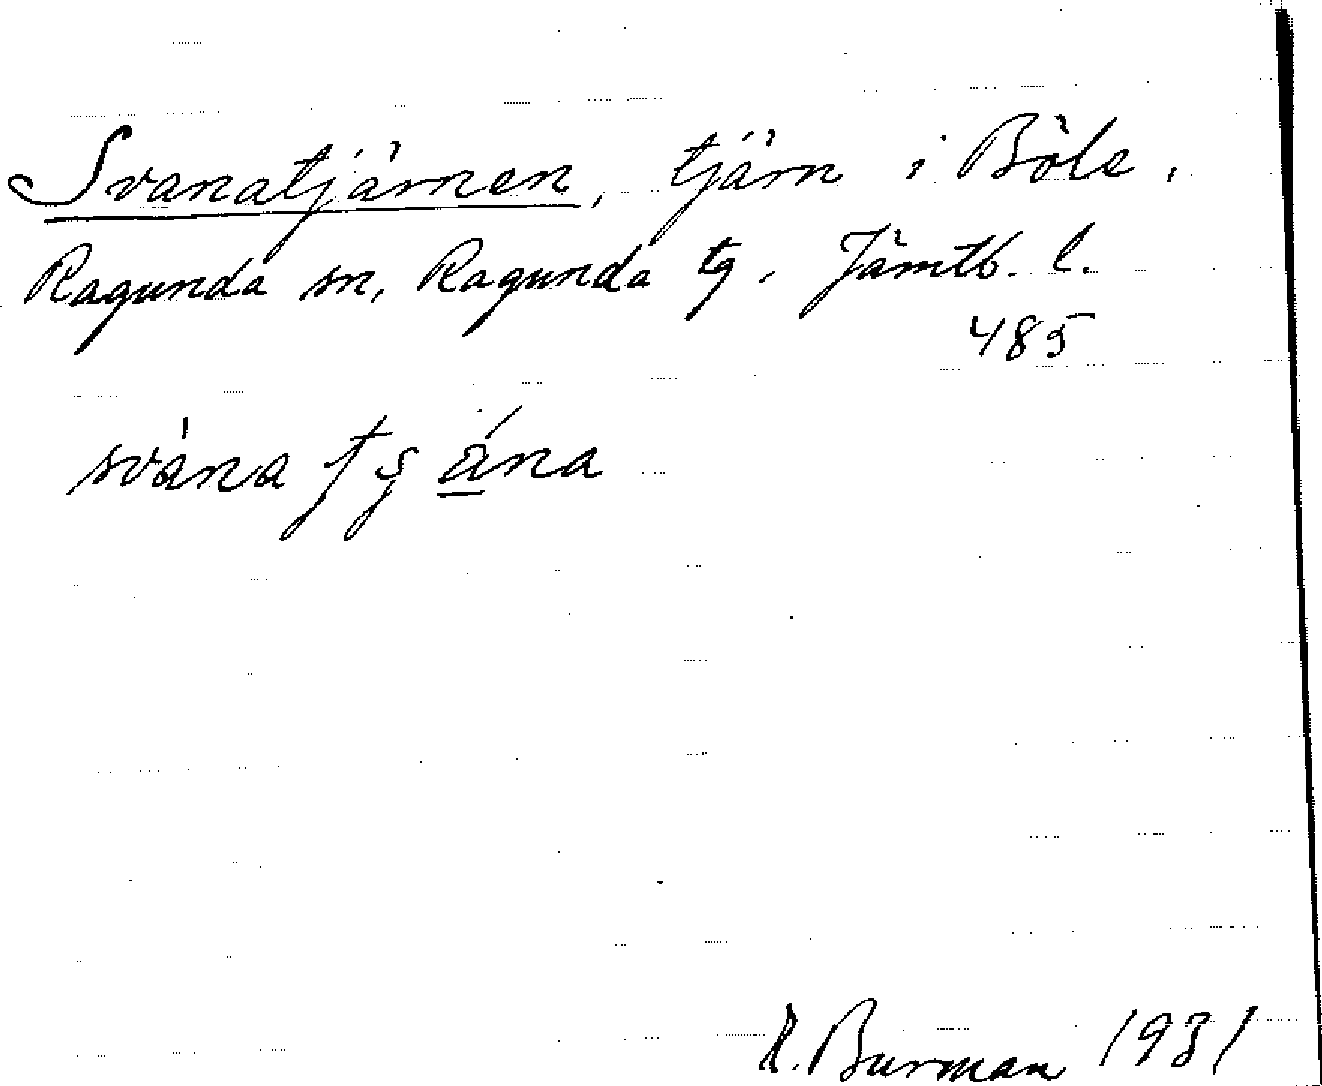 Svanatjärnen, tjärn i Böle,
Ragunda sn, Ragunda tg. Jämtl. l.
485
svána
R. Burman 1931